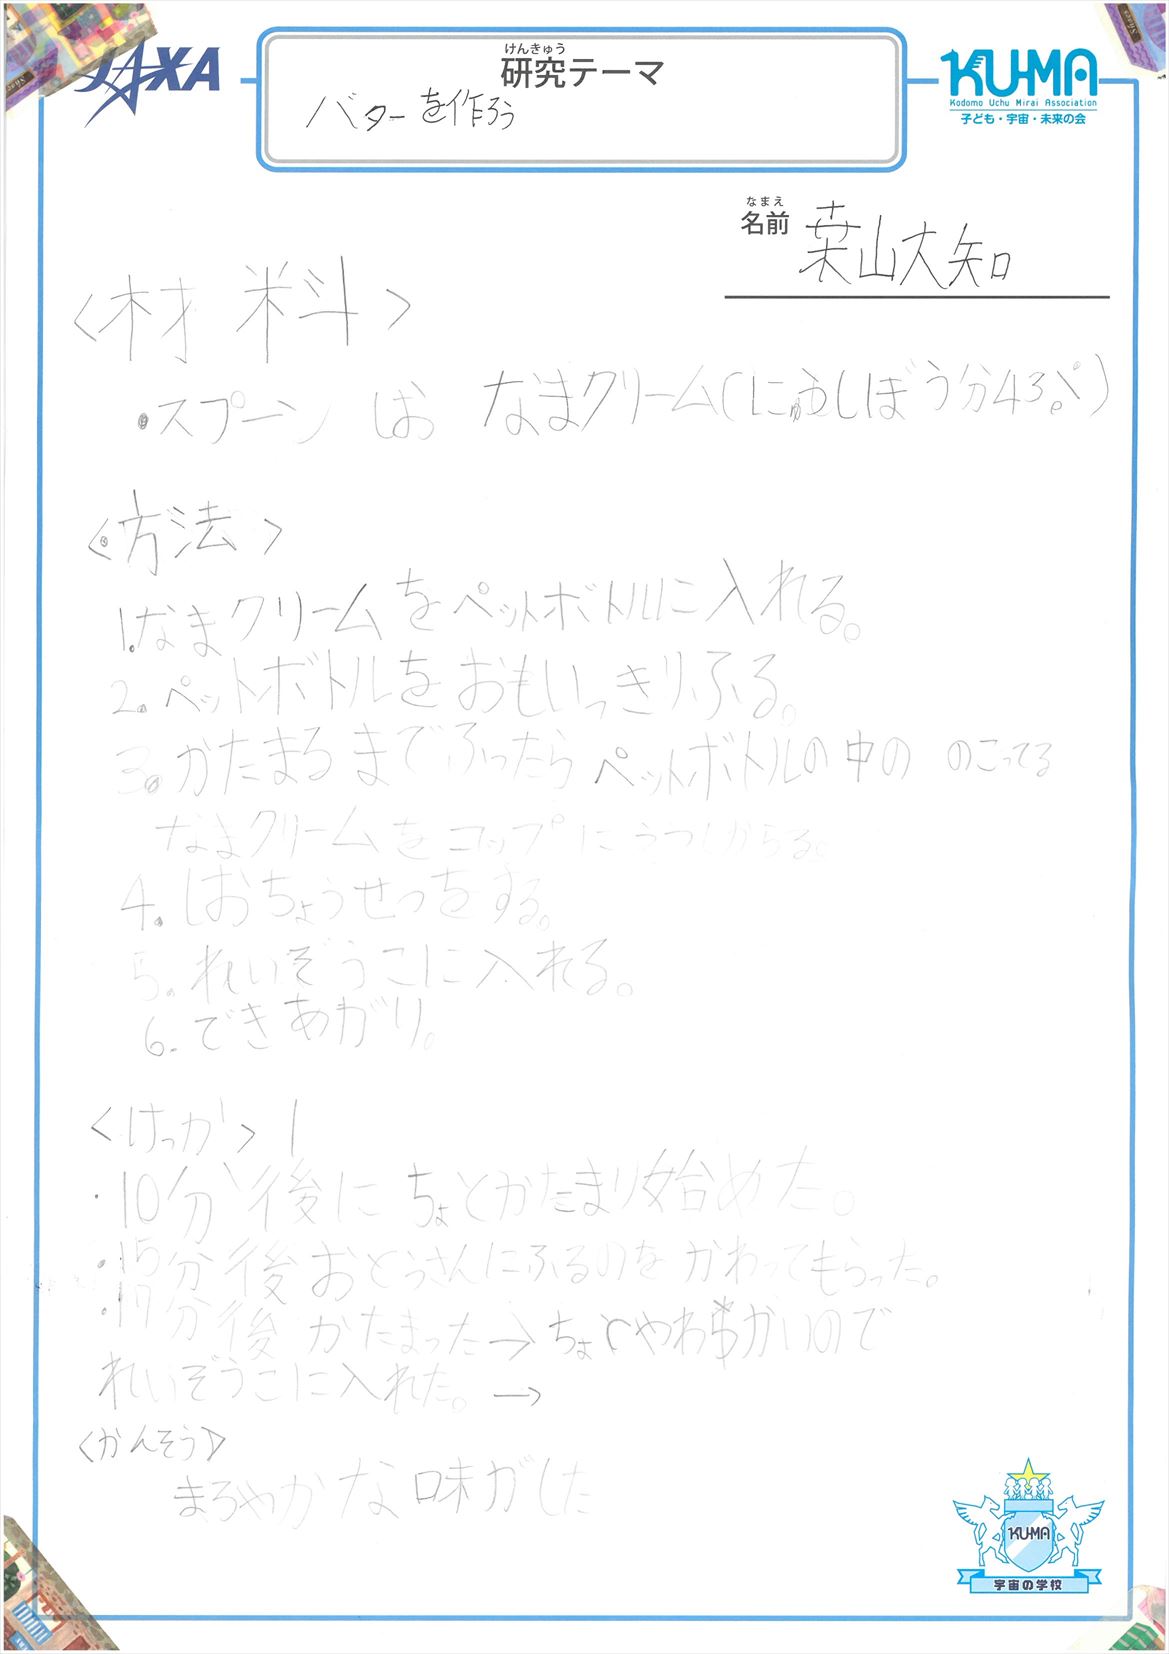 JAXA
けんきゅう
研究テーマ
バターを作ろう
KU-MA
Kodomo Uchu Mirai Association
子ども・宇宙・未来の会
なまえ
名前 葉山大知
<材料>
・スプーン しお なまクリーム(にゅうしぼう分43%)
<方法>
1.なまクリームをペットボトルに入れる。
2.ペットボトルをおもいっきりふる。
3.かたまるまでふったらペットボトルの中の のこってる
なまクリームをコップにうつ
4.しおちょうせつをする。
5.れいぞうこに入れる。
6.できあがり。
<けっか> 1
・10分後にちょとかたまり始めた。
・15分後おとうさんにふるのをかわってもらった。
・17分後かたまった→ちょとやわらかいので
れいぞうこに入れた。→
<かんそう>
まろやかな味がした
KU-MA
宇宙の学校